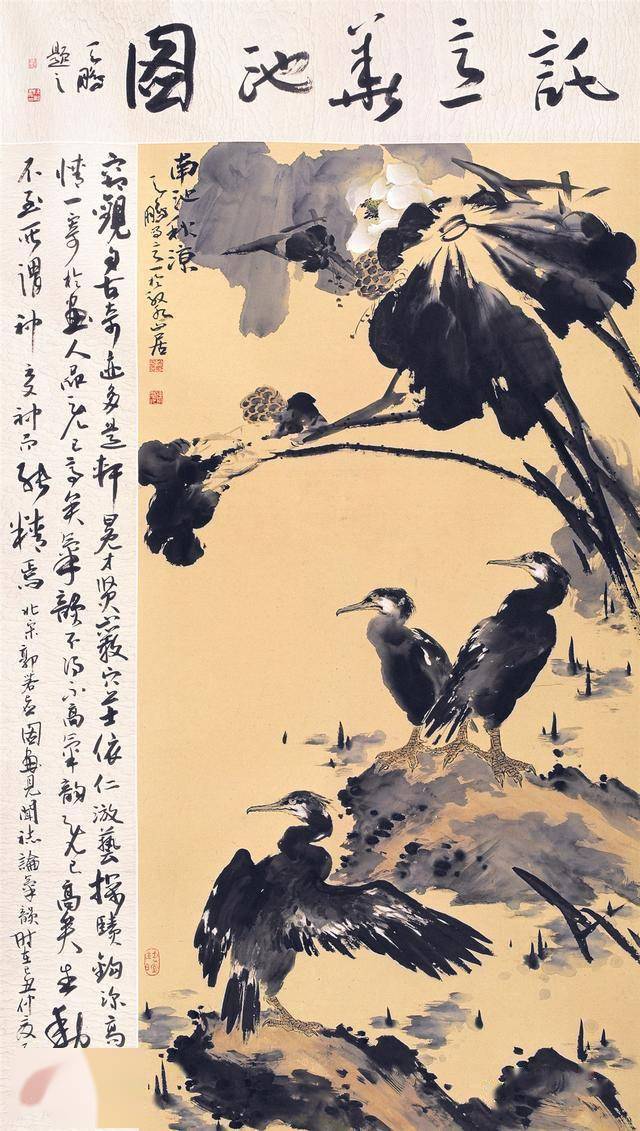 託意華池圖
題之
南池秋涼
竊觀自古奇迹多是軒冕才賢巖穴上士依仁游藝探賾鈎深高
情一寄於畫人品既已高矣氣韻不得不高氣韻既已高矣生動
不至所謂神又神而能精焉 北宋郭若虛圖畫見聞誌論氣韻時在己丑仲夏